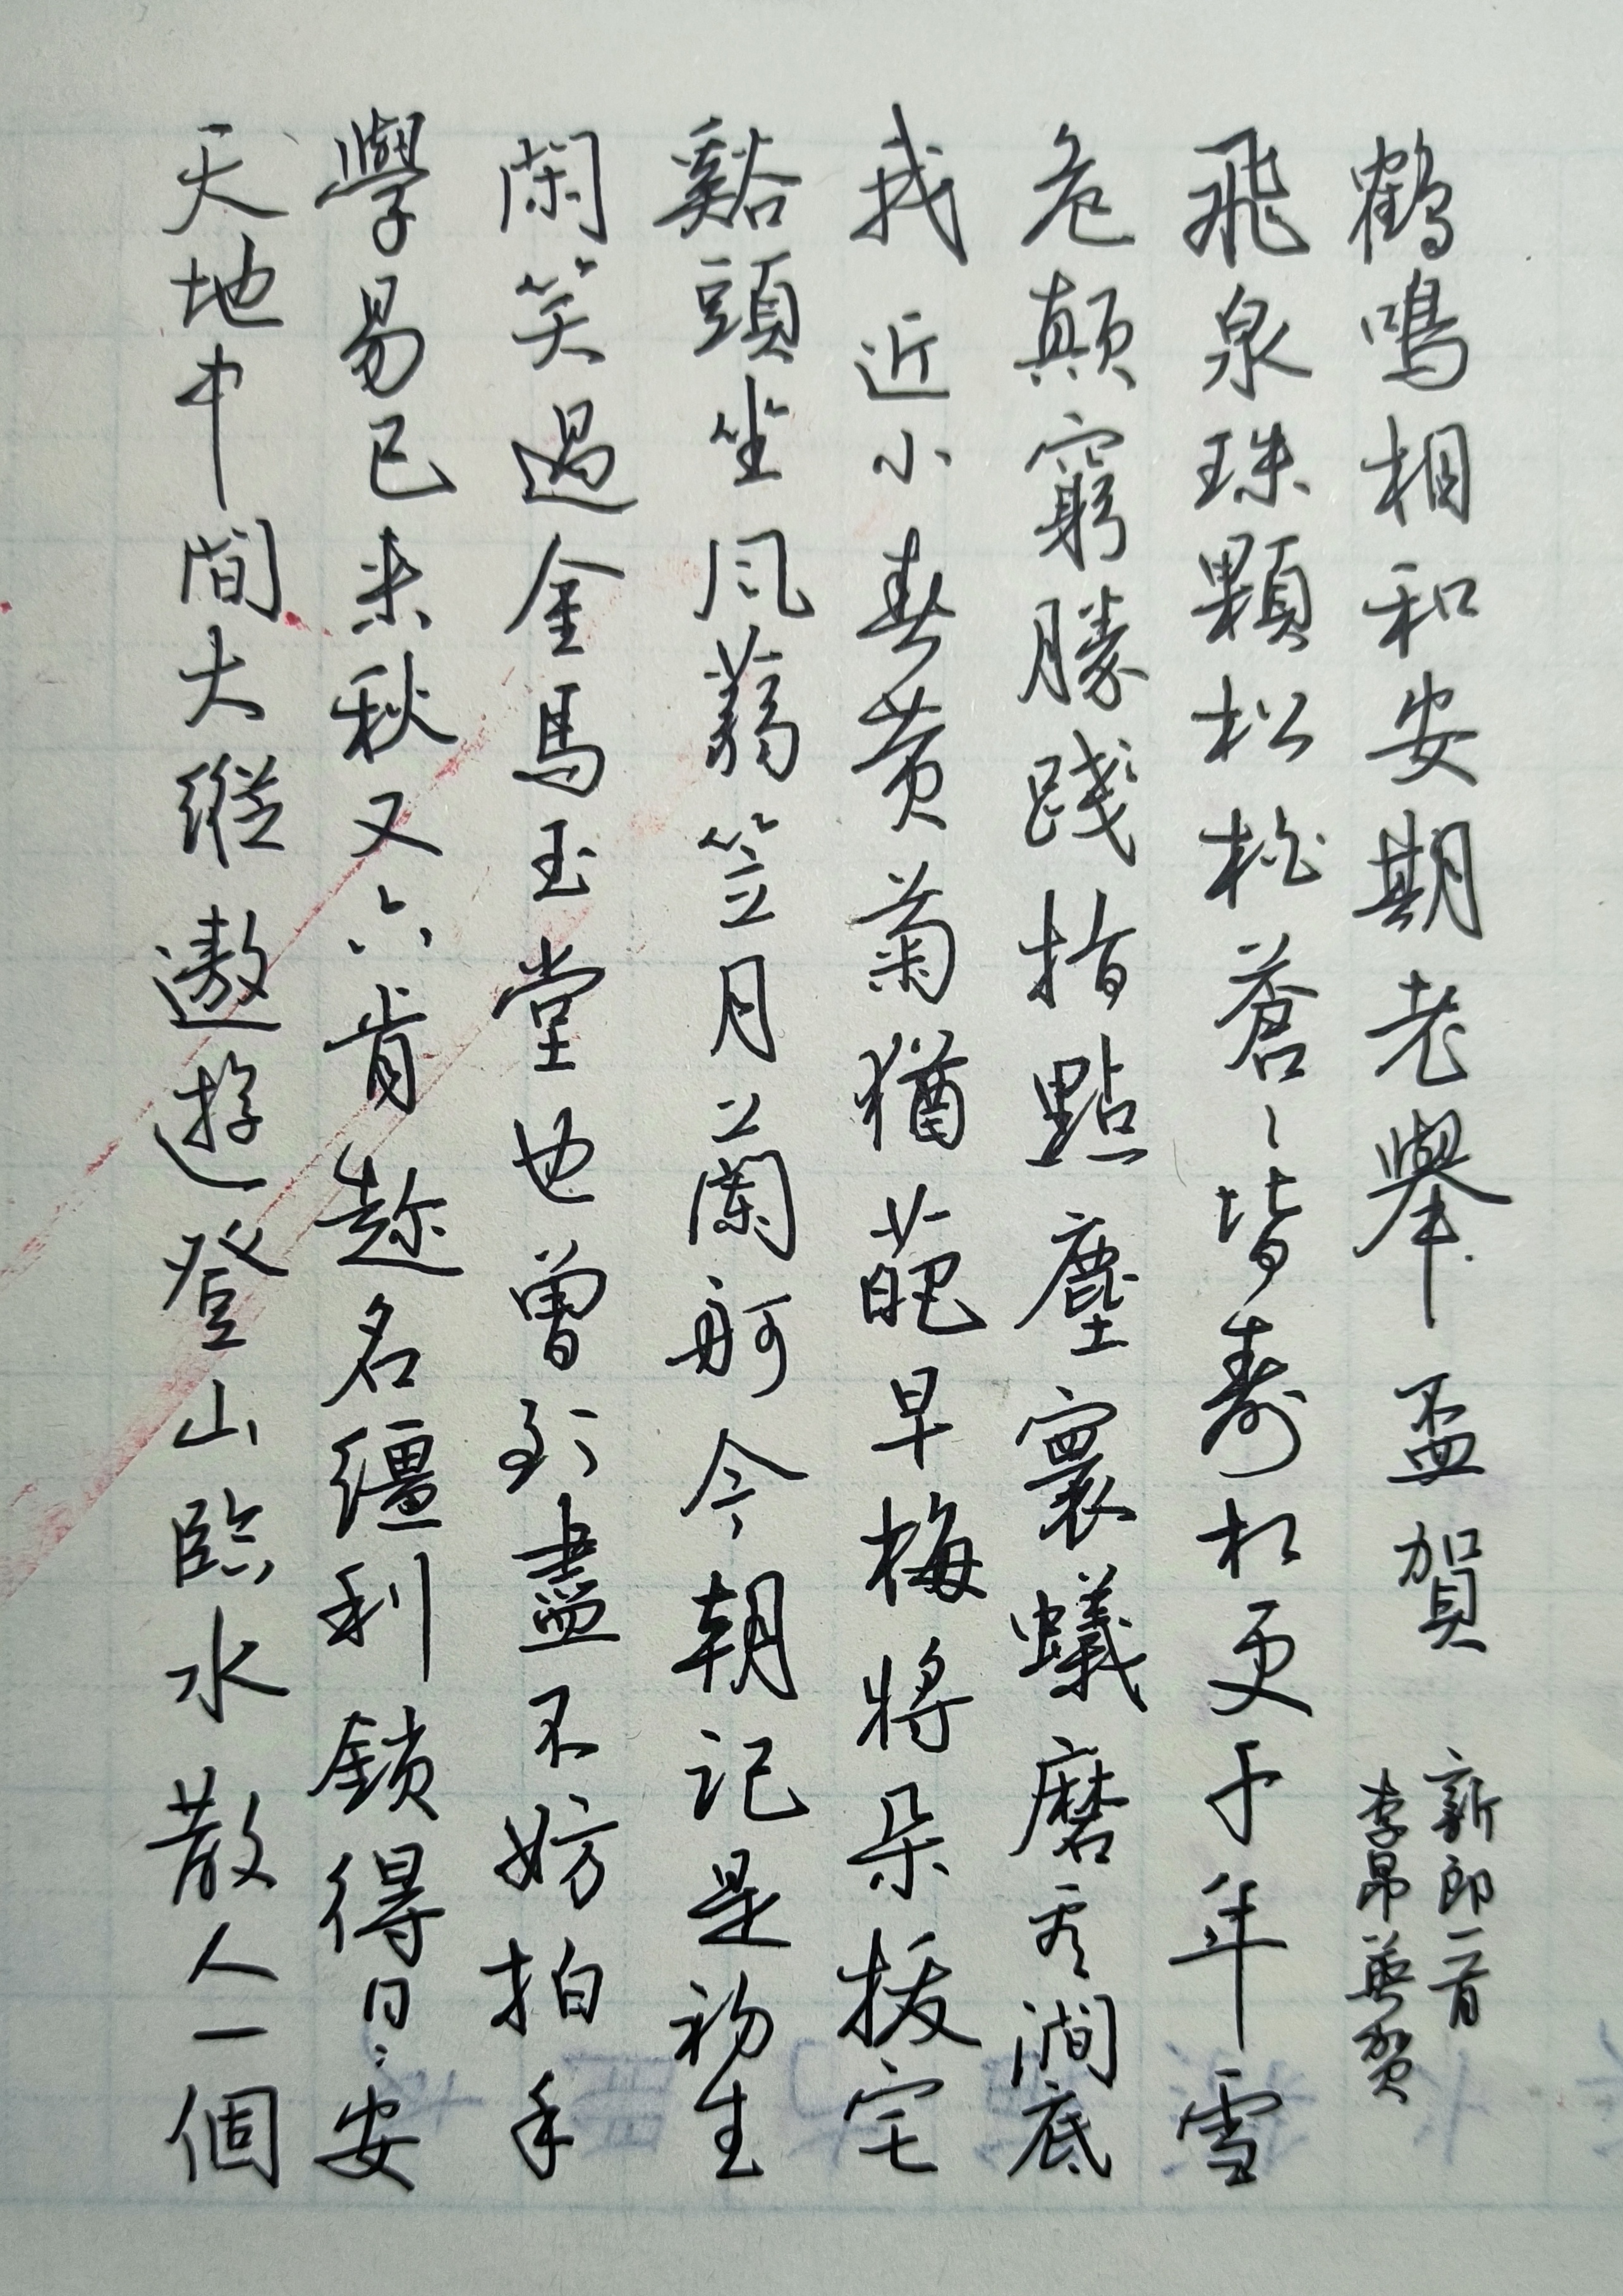 鶴鳴相和安期老舉盃賀
新郎一首
李昴英賀
飛泉珠顆松松蒼〻皆壽松更千年雪
危顛窮勝踐指點塵寰蟻磨看澗底
找近小春黄菊猶葩早梅將朵拔宅
谿頭坐風蒻笠月蘭舸今朝記是初生
閑笑過金馬玉堂也曾到盡不妨拍手
學易已来秋又六肯趂名繮利鎖得日〻安
天地中間大縱遨遊登山臨水散人一個